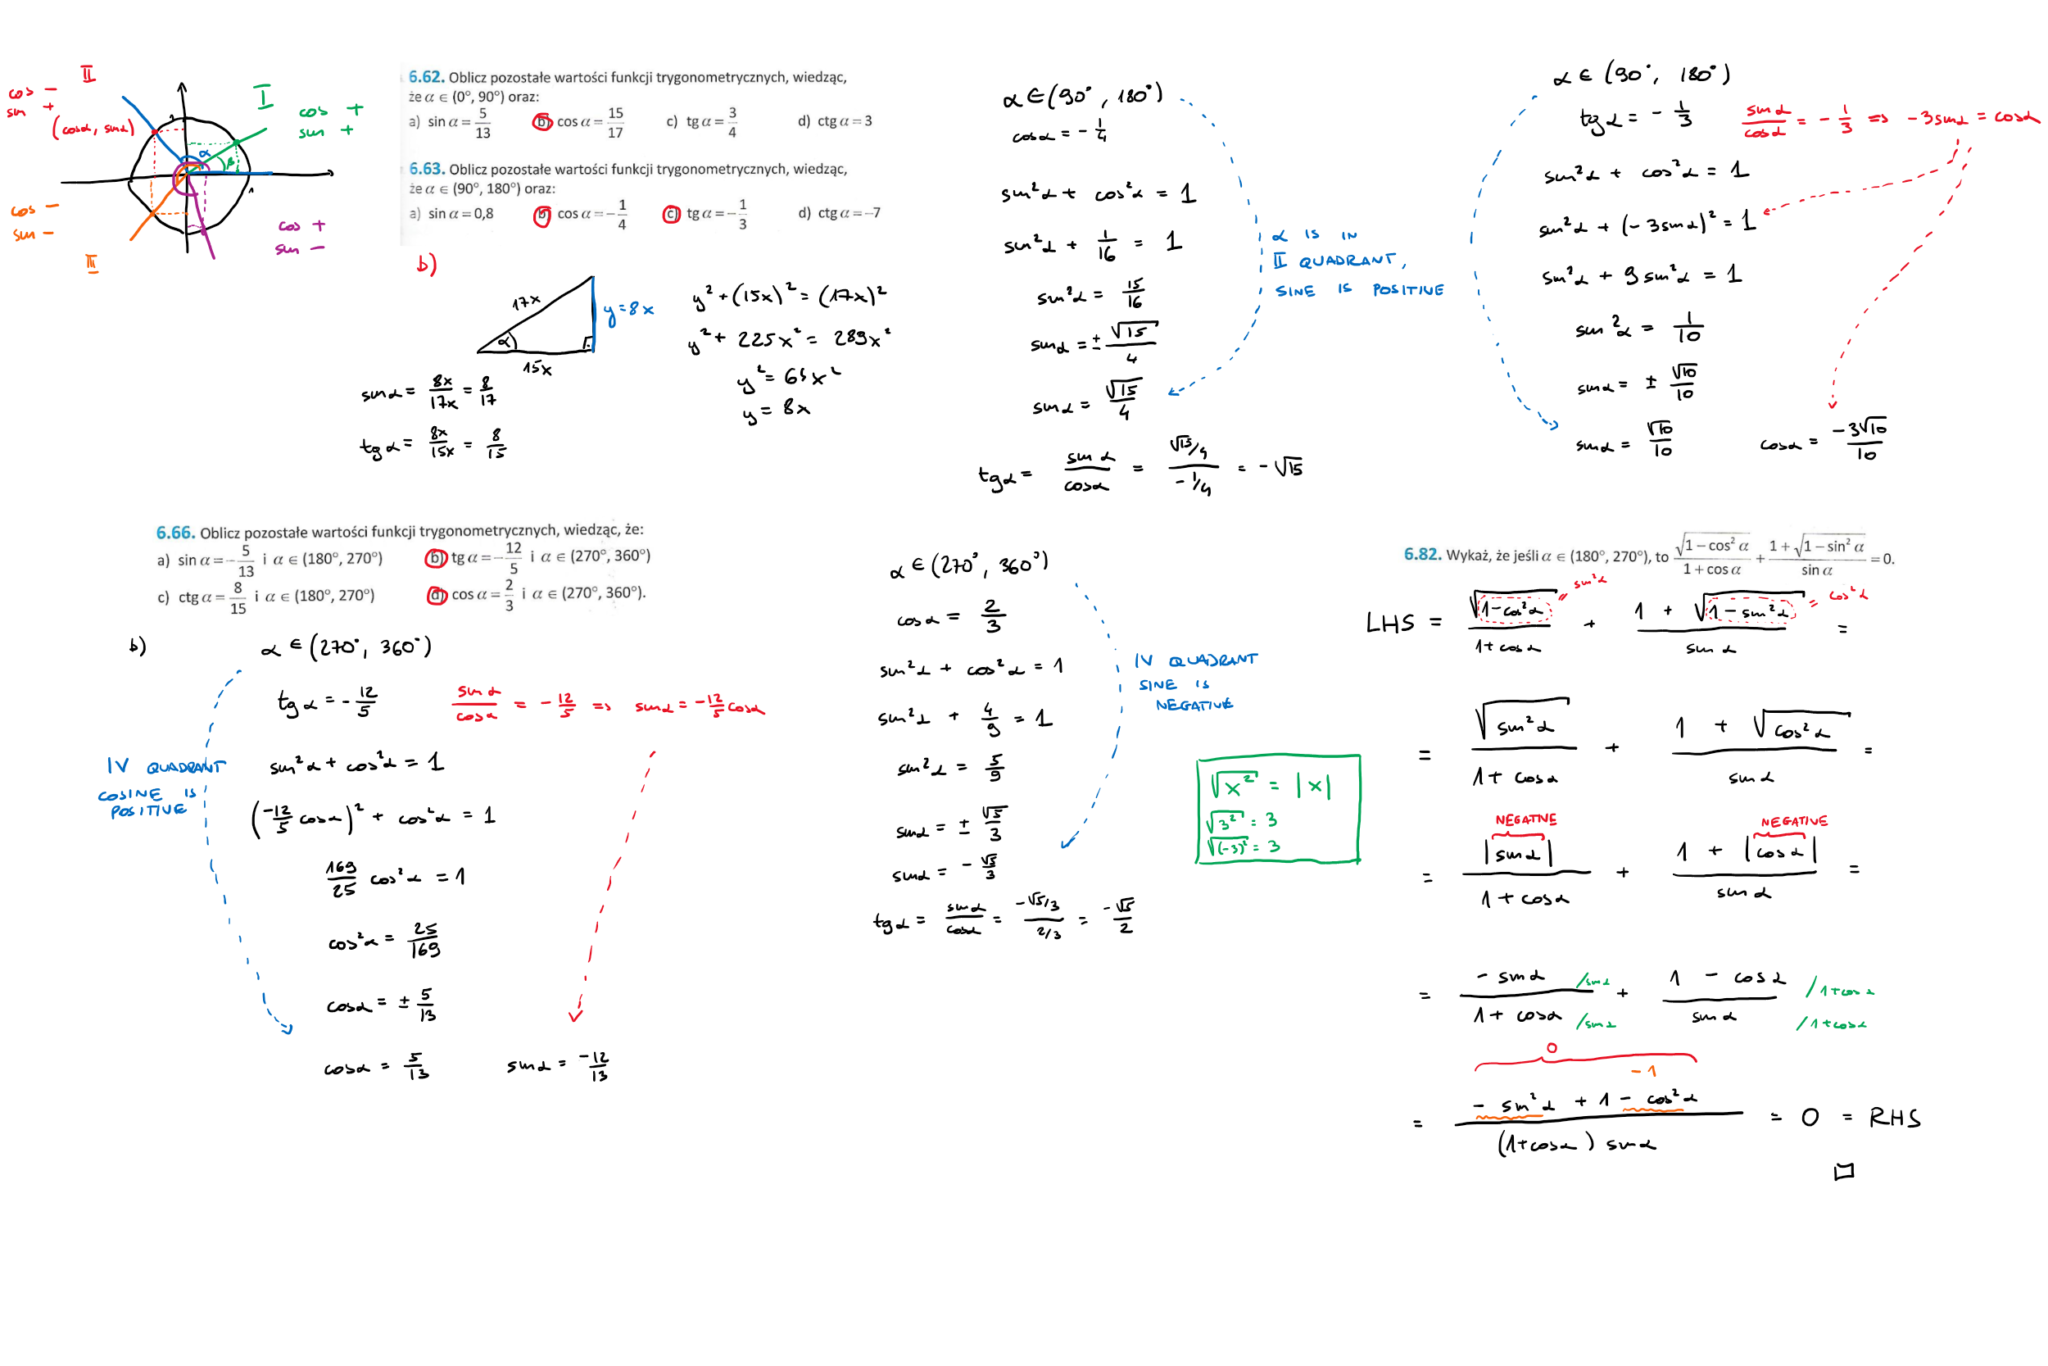 II
cos −
sin +
(cosα, sinα)
I
cos +
sin +
α
β
1
1
cos −
sin −
III
cos +
sin −
6.62. Oblicz pozostałe wartości funkcji trygonometrycznych, wiedząc,
że α ∈ (0°, 90°) oraz:
a) sin α = 5/13 b) cos α = 15/17 c) tg α = 3/4 d) ctg α = 3
6.63. Oblicz pozostałe wartości funkcji trygonometrycznych, wiedząc,
że α ∈ (90°, 180°) oraz:
a) sin α = 0,8 b) cos α = −1/4 c) tg α = −1/3 d) ctg α = −7
b)
17x
α
15x
y = 8x
y² + (15x)² = (17x)²
y² + 225x² = 289x²
y² = 64x²
y = 8x
sinα = 8x/17x = 8/17
tgα = 8x/15x = 8/15
α ∈ (90°, 180°)
cosα = −1/4
sin²α + cos²α = 1
sin²α + 1/16 = 1
sin²α = 15/16
sinα = ± √15/4
sinα = √15/4
tgα = sinα/cosα = (√15/4)/(−1/4) = −√15
α IS IN
II QUADRANT,
SINE IS POSITIVE
α ∈ (90°, 180°)
tgα = −1/3 sinα/cosα = −1/3 => −3sinα = cosα
sin²α + cos²α = 1
sin²α + (−3sinα)² = 1
sin²α + 9sin²α = 1
sin²α = 1/10
sinα = ± √10/10
sinα = √10/10 cosα = −3√10/10
6.66. Oblicz pozostałe wartości funkcji trygonometrycznych, wiedząc, że:
a) sin α = −5/13 i α ∈ (180°, 270°) b) tg α = −12/5 i α ∈ (270°, 360°)
c) ctg α = 8/15 i α ∈ (180°, 270°) d) cos α = 2/3 i α ∈ (270°, 360°).
b) α ∈ (270°, 360°)
tgα = −12/5 sinα/cosα = −12/5 => sinα = −12/5 cosα
sin²α + cos²α = 1
(−12/5 cosα)² + cos²α = 1
169/25 cos²α = 1
cos²α = 25/169
cosα = ± 5/13
cosα = 5/13 sinα = −12/13
IV QUADRANT
COSINE IS
POSITIVE
α ∈ (270°, 360°)
cosα = 2/3
sin²α + cos²α = 1
sin²α + 4/9 = 1
sin²α = 5/9
sinα = ± √5/3
sinα = − √5/3
tgα = sinα/cosα = (−√5/3)/(2/3) = −√5/2
IV QUADRANT
SINE IS
NEGATIVE
√x² = |x|
√3² = 3
√(−3)² = 3
6.82. Wykaż, że jeśli α ∈ (180°, 270°), to √(1 − cos² α)/(1 + cos α) + (1 + √(1 − sin² α))/sin α = 0.
= sin²α
= cos²α
LHS = √(1−cos²α)/(1+cosα) + (1 + √(1−sin²α))/sinα =
= √sin²α/(1+cosα) + (1 + √cos²α)/sinα =
NEGATIVE NEGATIVE
= |sinα|/(1+cosα) + (1 + |cosα|)/sinα =
= −sinα/(1+cosα) /sinα /sinα + (1 − cosα)/sinα /1+cosα /1+cosα
0
−1
= (−sin²α + 1 − cos²α)/((1+cosα) sinα) = 0 = RHS